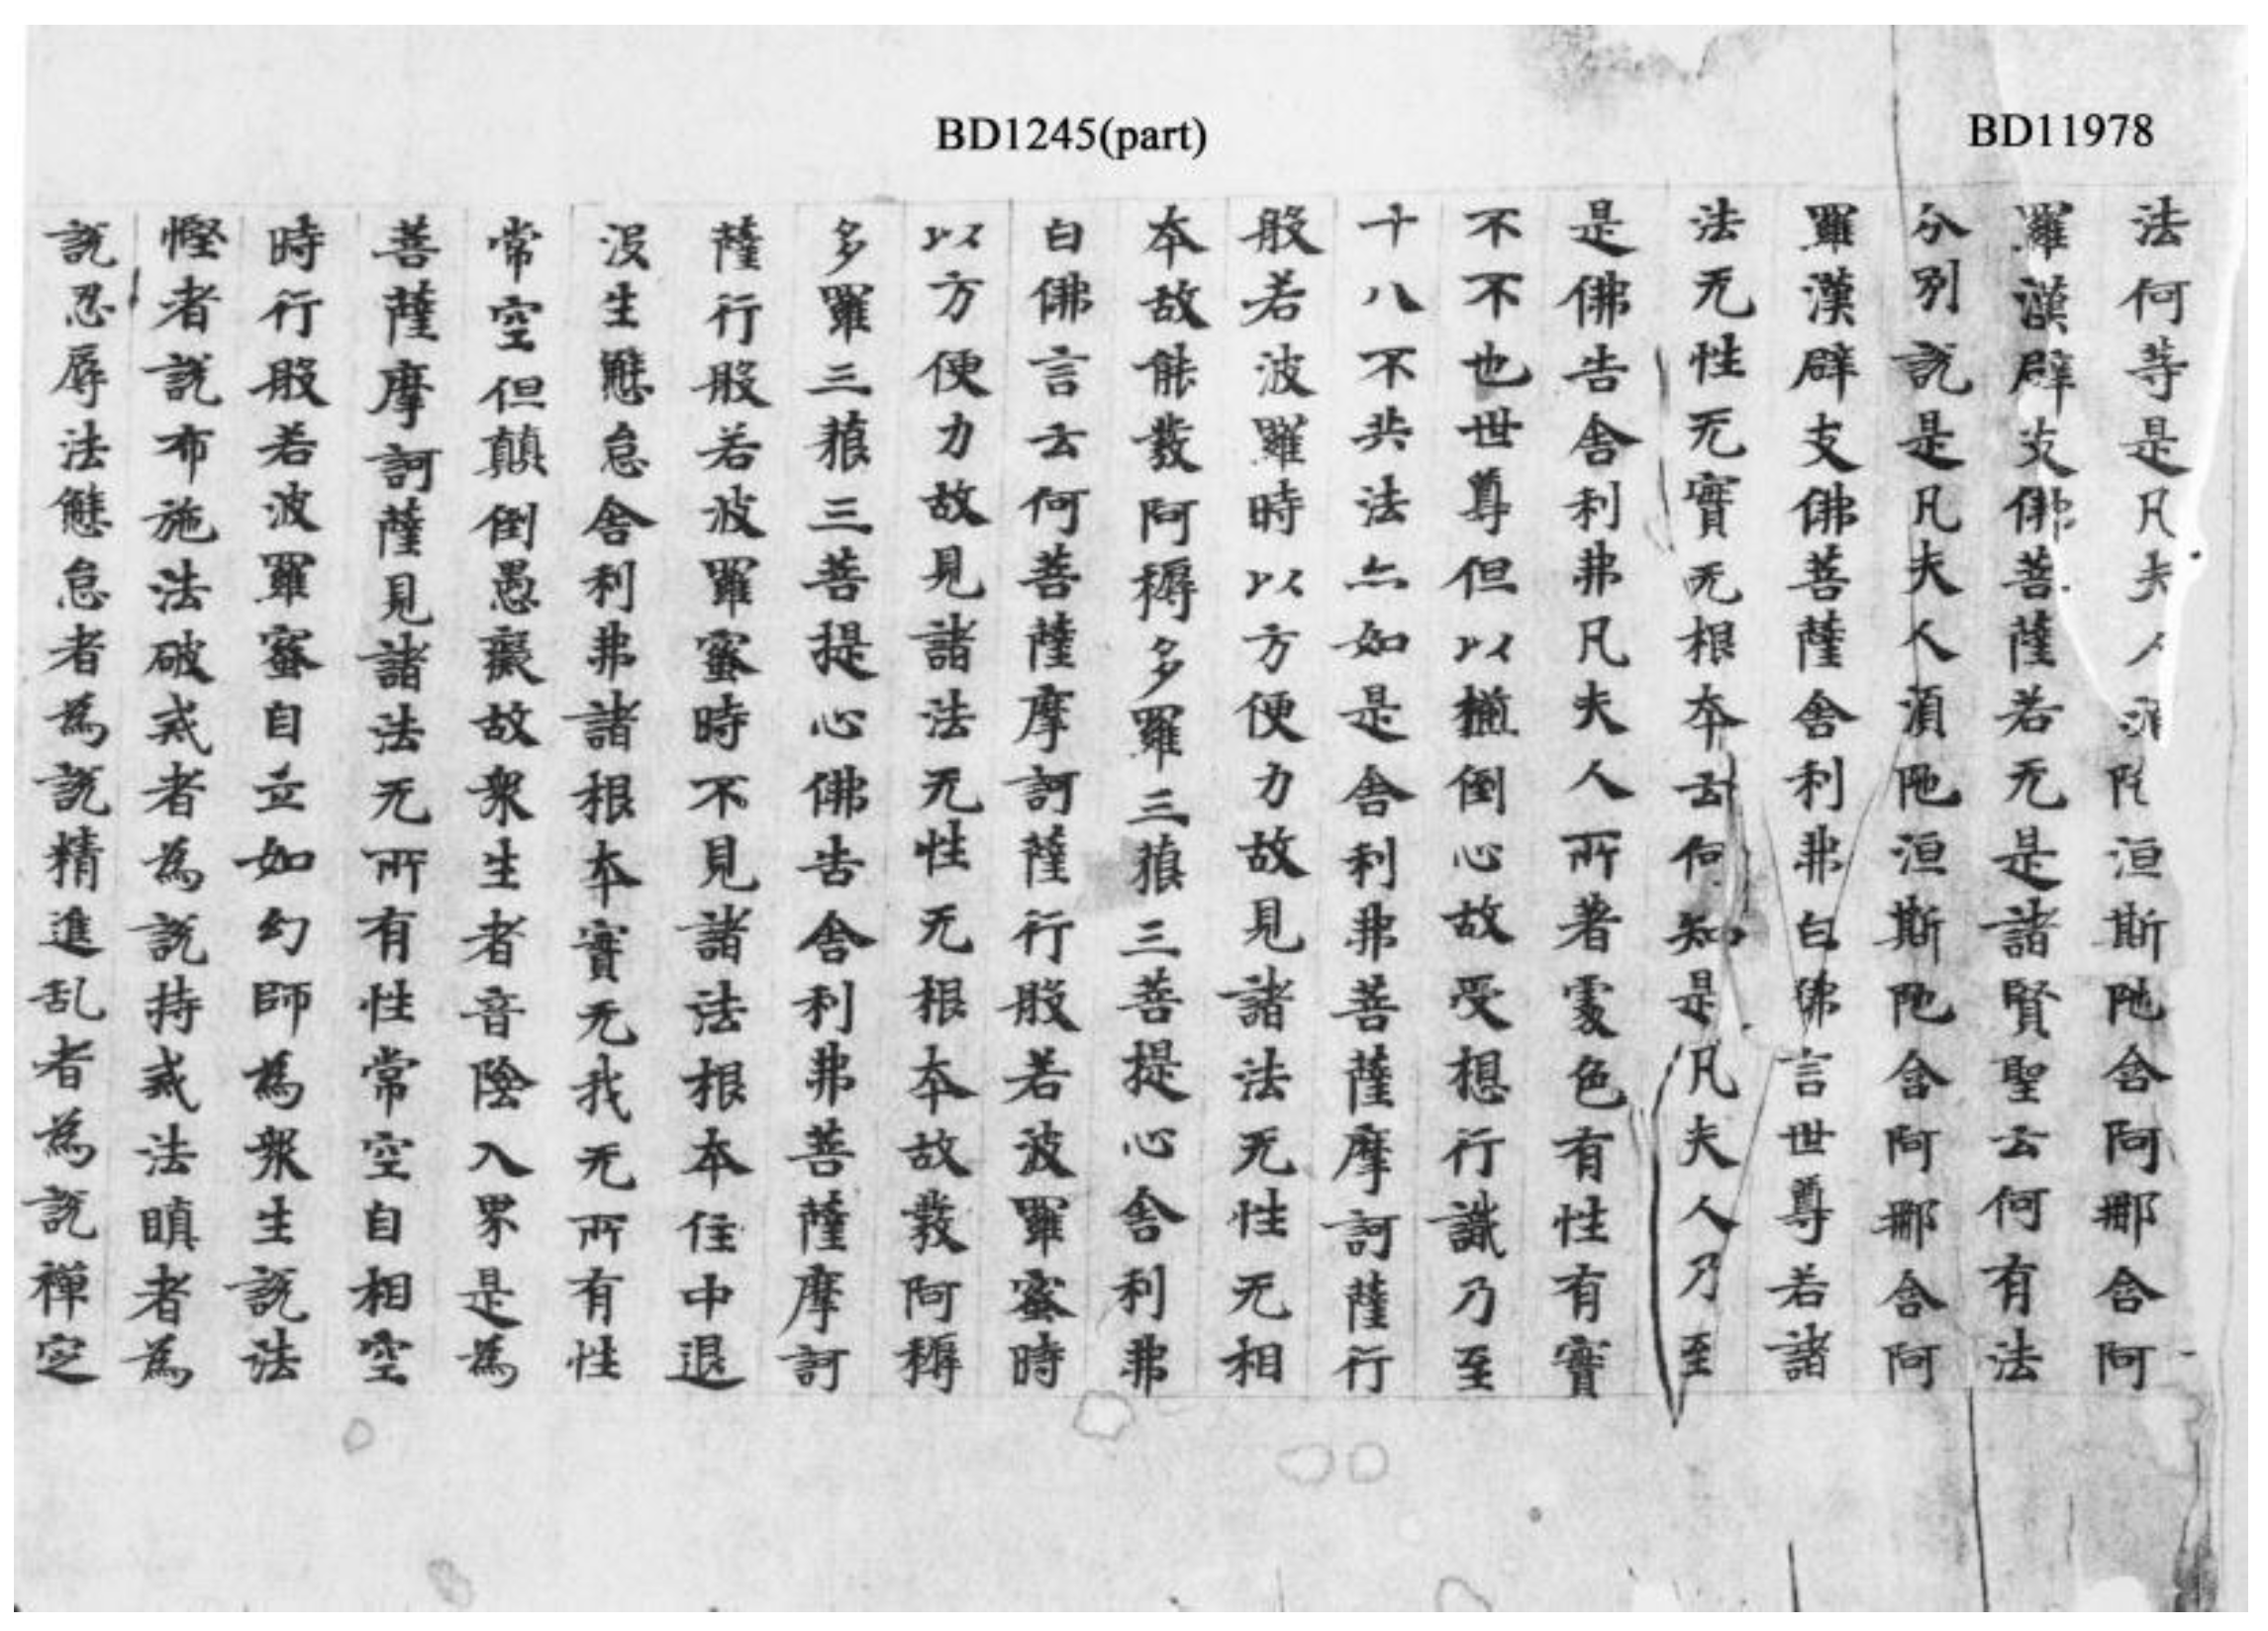 BD1245(part)
BD11978
法何等是凡夫人須陁洹斯陁含阿那含阿
羅漢辟支佛菩薩若无是諸賢聖云何有法
分別說是凡夫人須陁洹斯陁含阿那含阿
羅漢辟支佛菩薩舍利弗白佛言世尊若諸
法无性无實无根本云何知是凡夫人乃至
是佛告舍利弗凡夫人所著處色有性有實
不不也世尊但以倒心故受想行識乃至
十八不共法亦如是舍利弗菩薩摩訶薩行
般若波羅時以方便力故見諸法无性无相
本故能發阿耨多羅三藐三菩提心舍利弗
白佛言云何菩薩摩訶薩行般若波羅蜜時
以方便力故見諸法无性无根本故發阿耨
多羅三藐三菩提心佛告舍利弗菩薩摩訶
薩行般若波羅蜜時不見諸法根本住中退
沒生懈怠舍利弗諸根本實无我无所有性
常空但顛倒愚癡故衆生者音陰入界是為
菩薩摩訶薩見諸法无所有性常空自相空
時行般若波羅蜜自立如幻師為衆生說法
慳者說布施法破戒者為說持戒法瞋者為
說忍辱法懈怠者為說精進乱者為說禪定